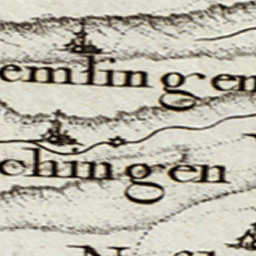 emlingen
chingen